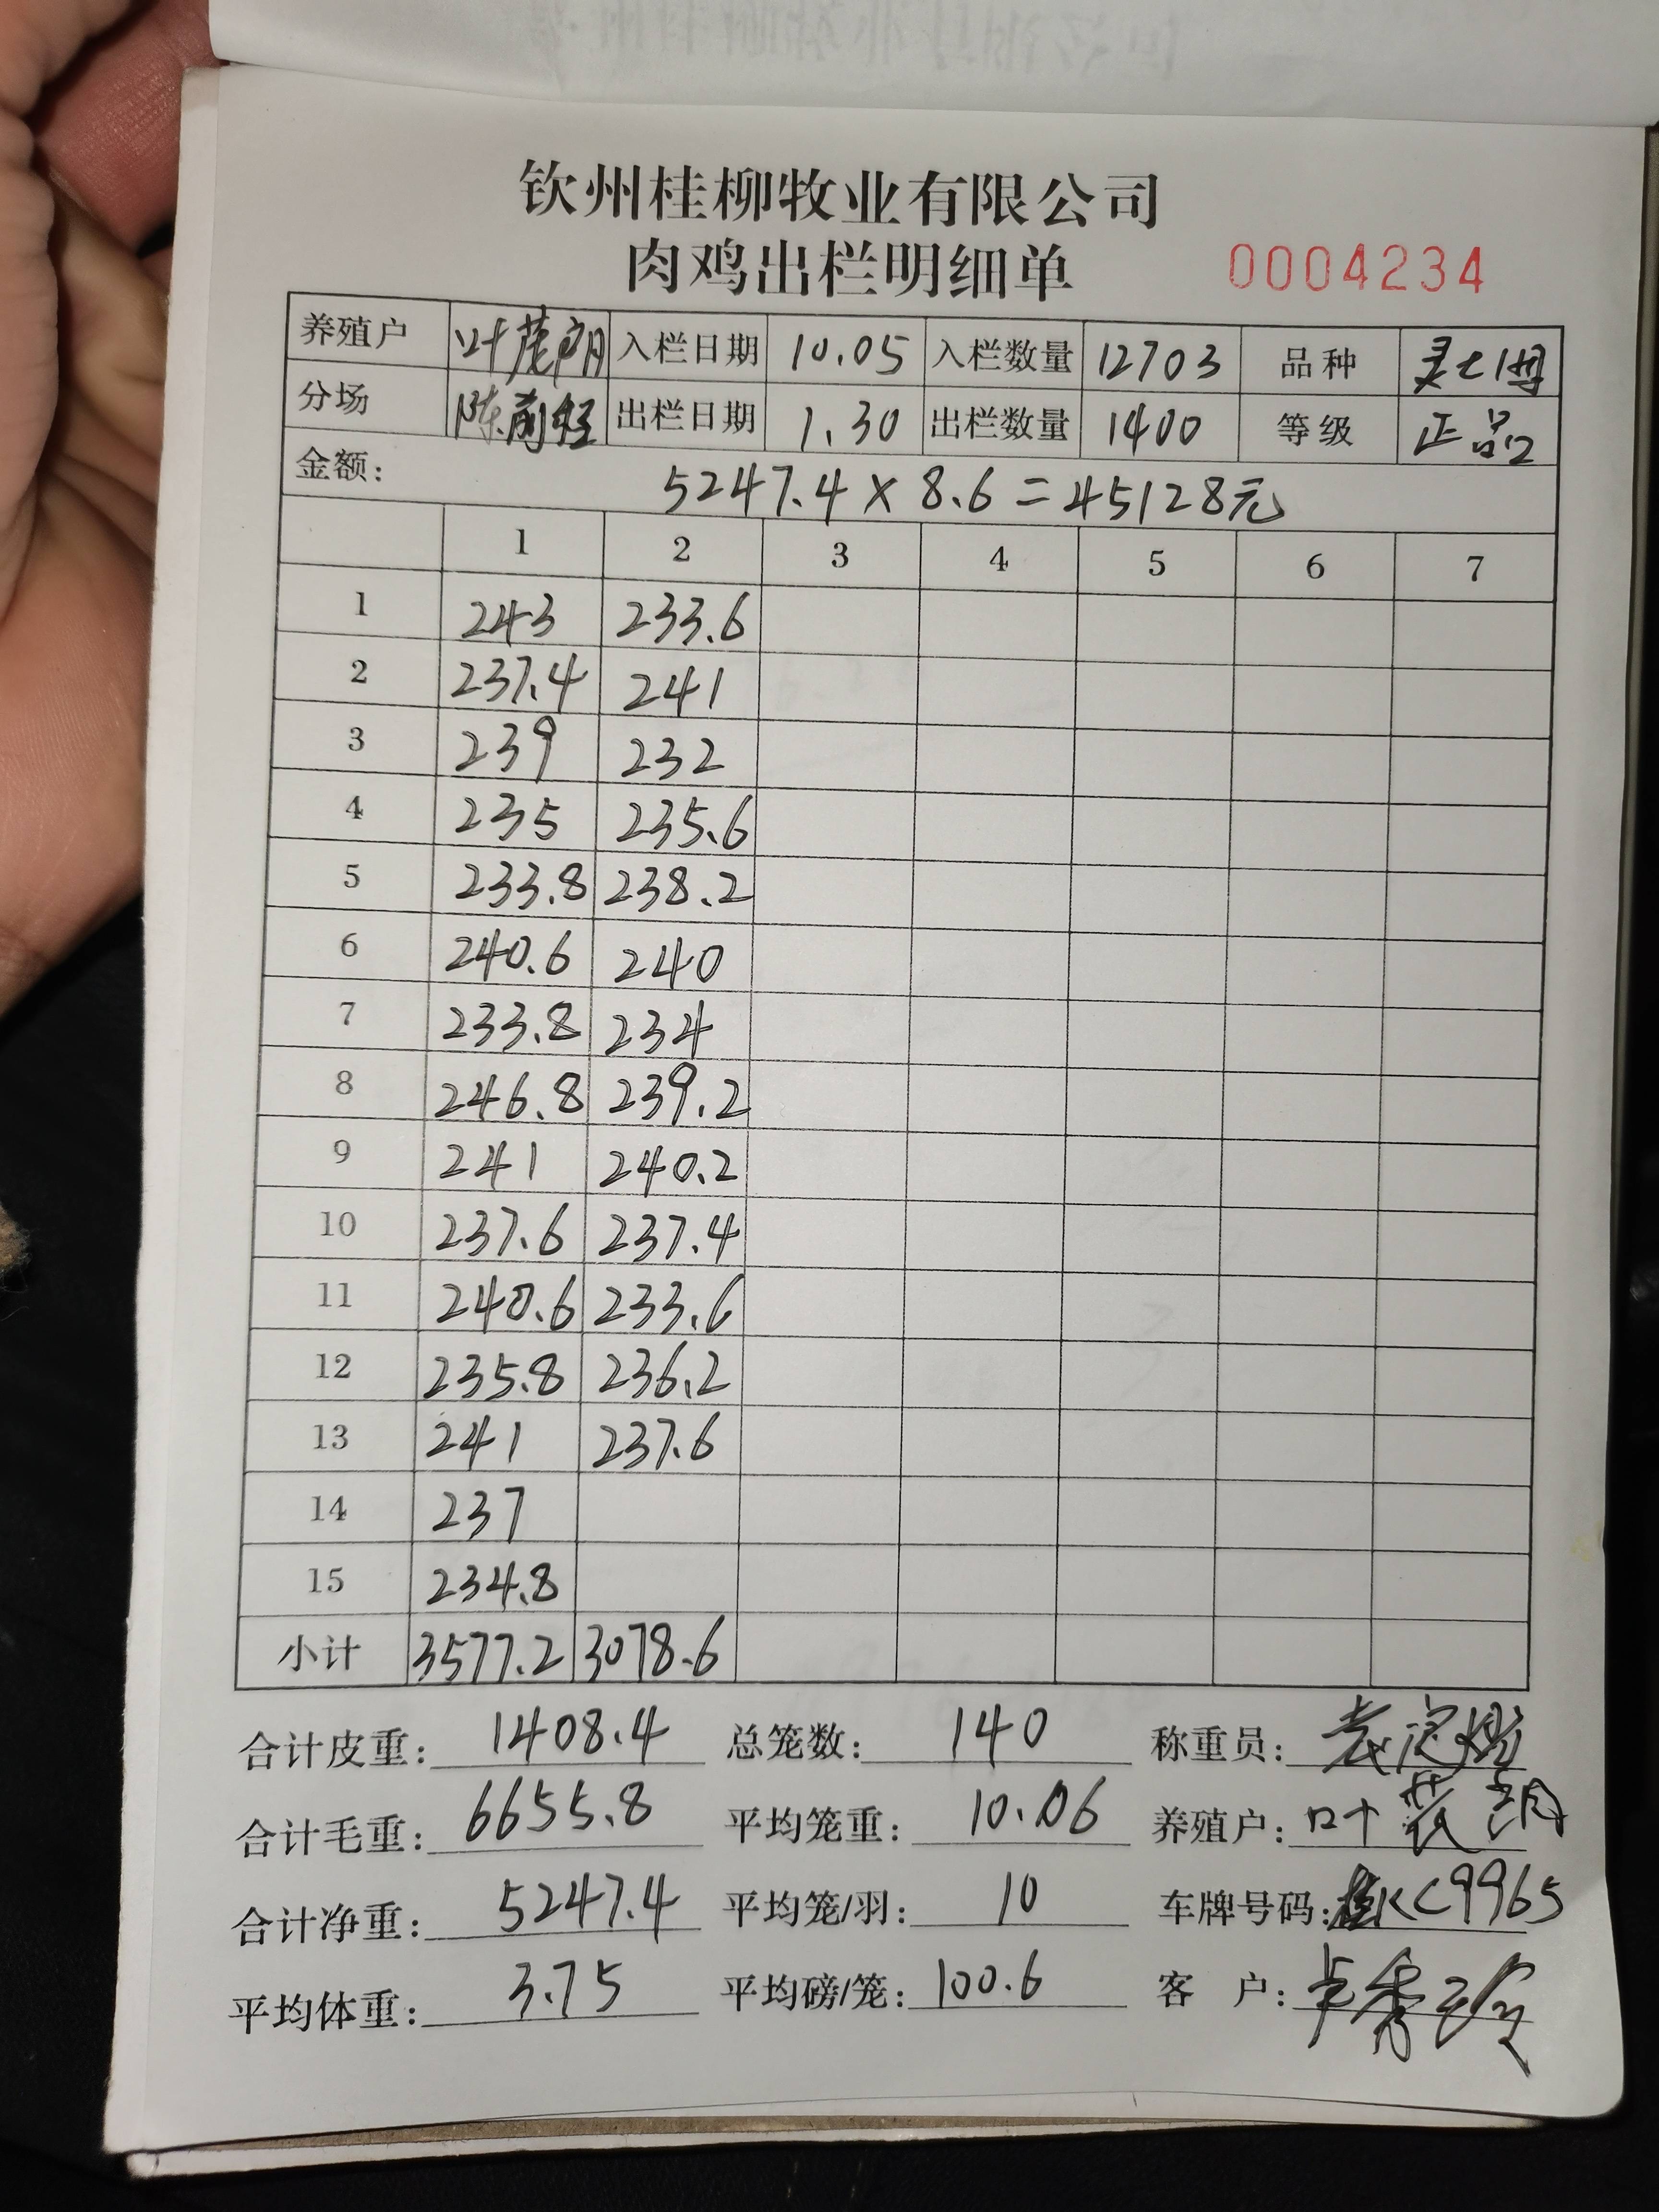 钦州桂柳牧业有限公司
肉鸡出栏明细单 0004234
养殖户 叶茂朗 入栏日期 10.05 入栏数量 12703 品种
分场 出栏日期 1.30 出栏数量 1400 等级 正品
金额: 5247.4×8.6=45128元
1 2 3 4 5 6 7
1 243 233.6
2 237.4 241
3 239 232
4 235 235.6
5 233.8 238.2
6 240.6 240
7 233.8 234
8 246.8 239.2
9 241 240.2
10 237.6 237.4
11 240.6 233.6
12 235.8 236.2
13 241 237.6
14 237
15 234.8
小计 3577.2 3078.6
合计皮重: 1408.4 总笼数: 140 称重员:
合计毛重: 6655.8 平均笼重: 10.06 养殖户: 叶茂朗
合计净重: 5247.4 平均笼/羽: 10 车牌号码: 桂KC9965
平均体重: 3.75 平均磅/笼: 100.6 客 户: